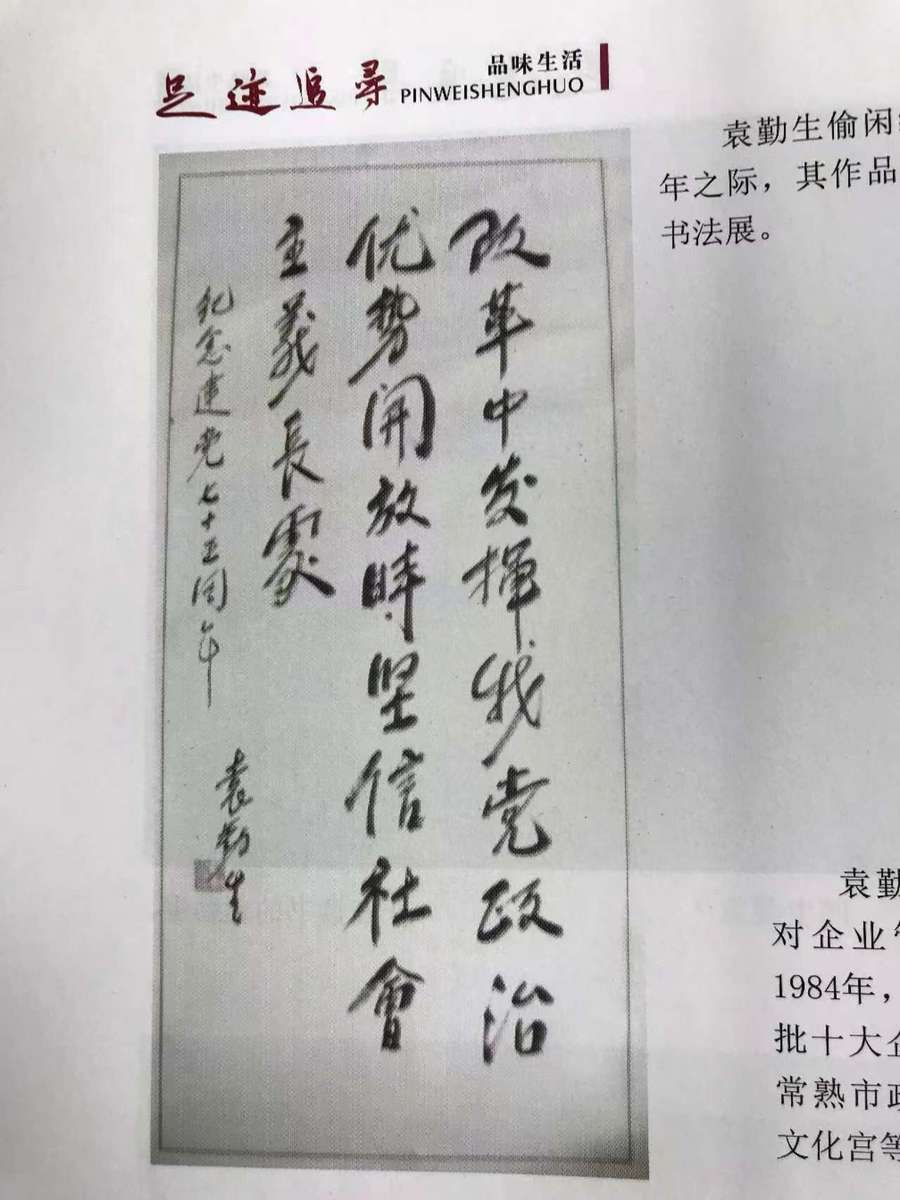 足迹追寻
品味生活
PINWEISHENGHUO
袁勤生偷闲
年之际，其作品
书法展。
改革中发挥我党政治
优势開放時坚信社會
主義長處
纪念建党七十五周年
袁勤生
袁勤
对企业
1984年，
批十大企
常熟市政
文化宫等